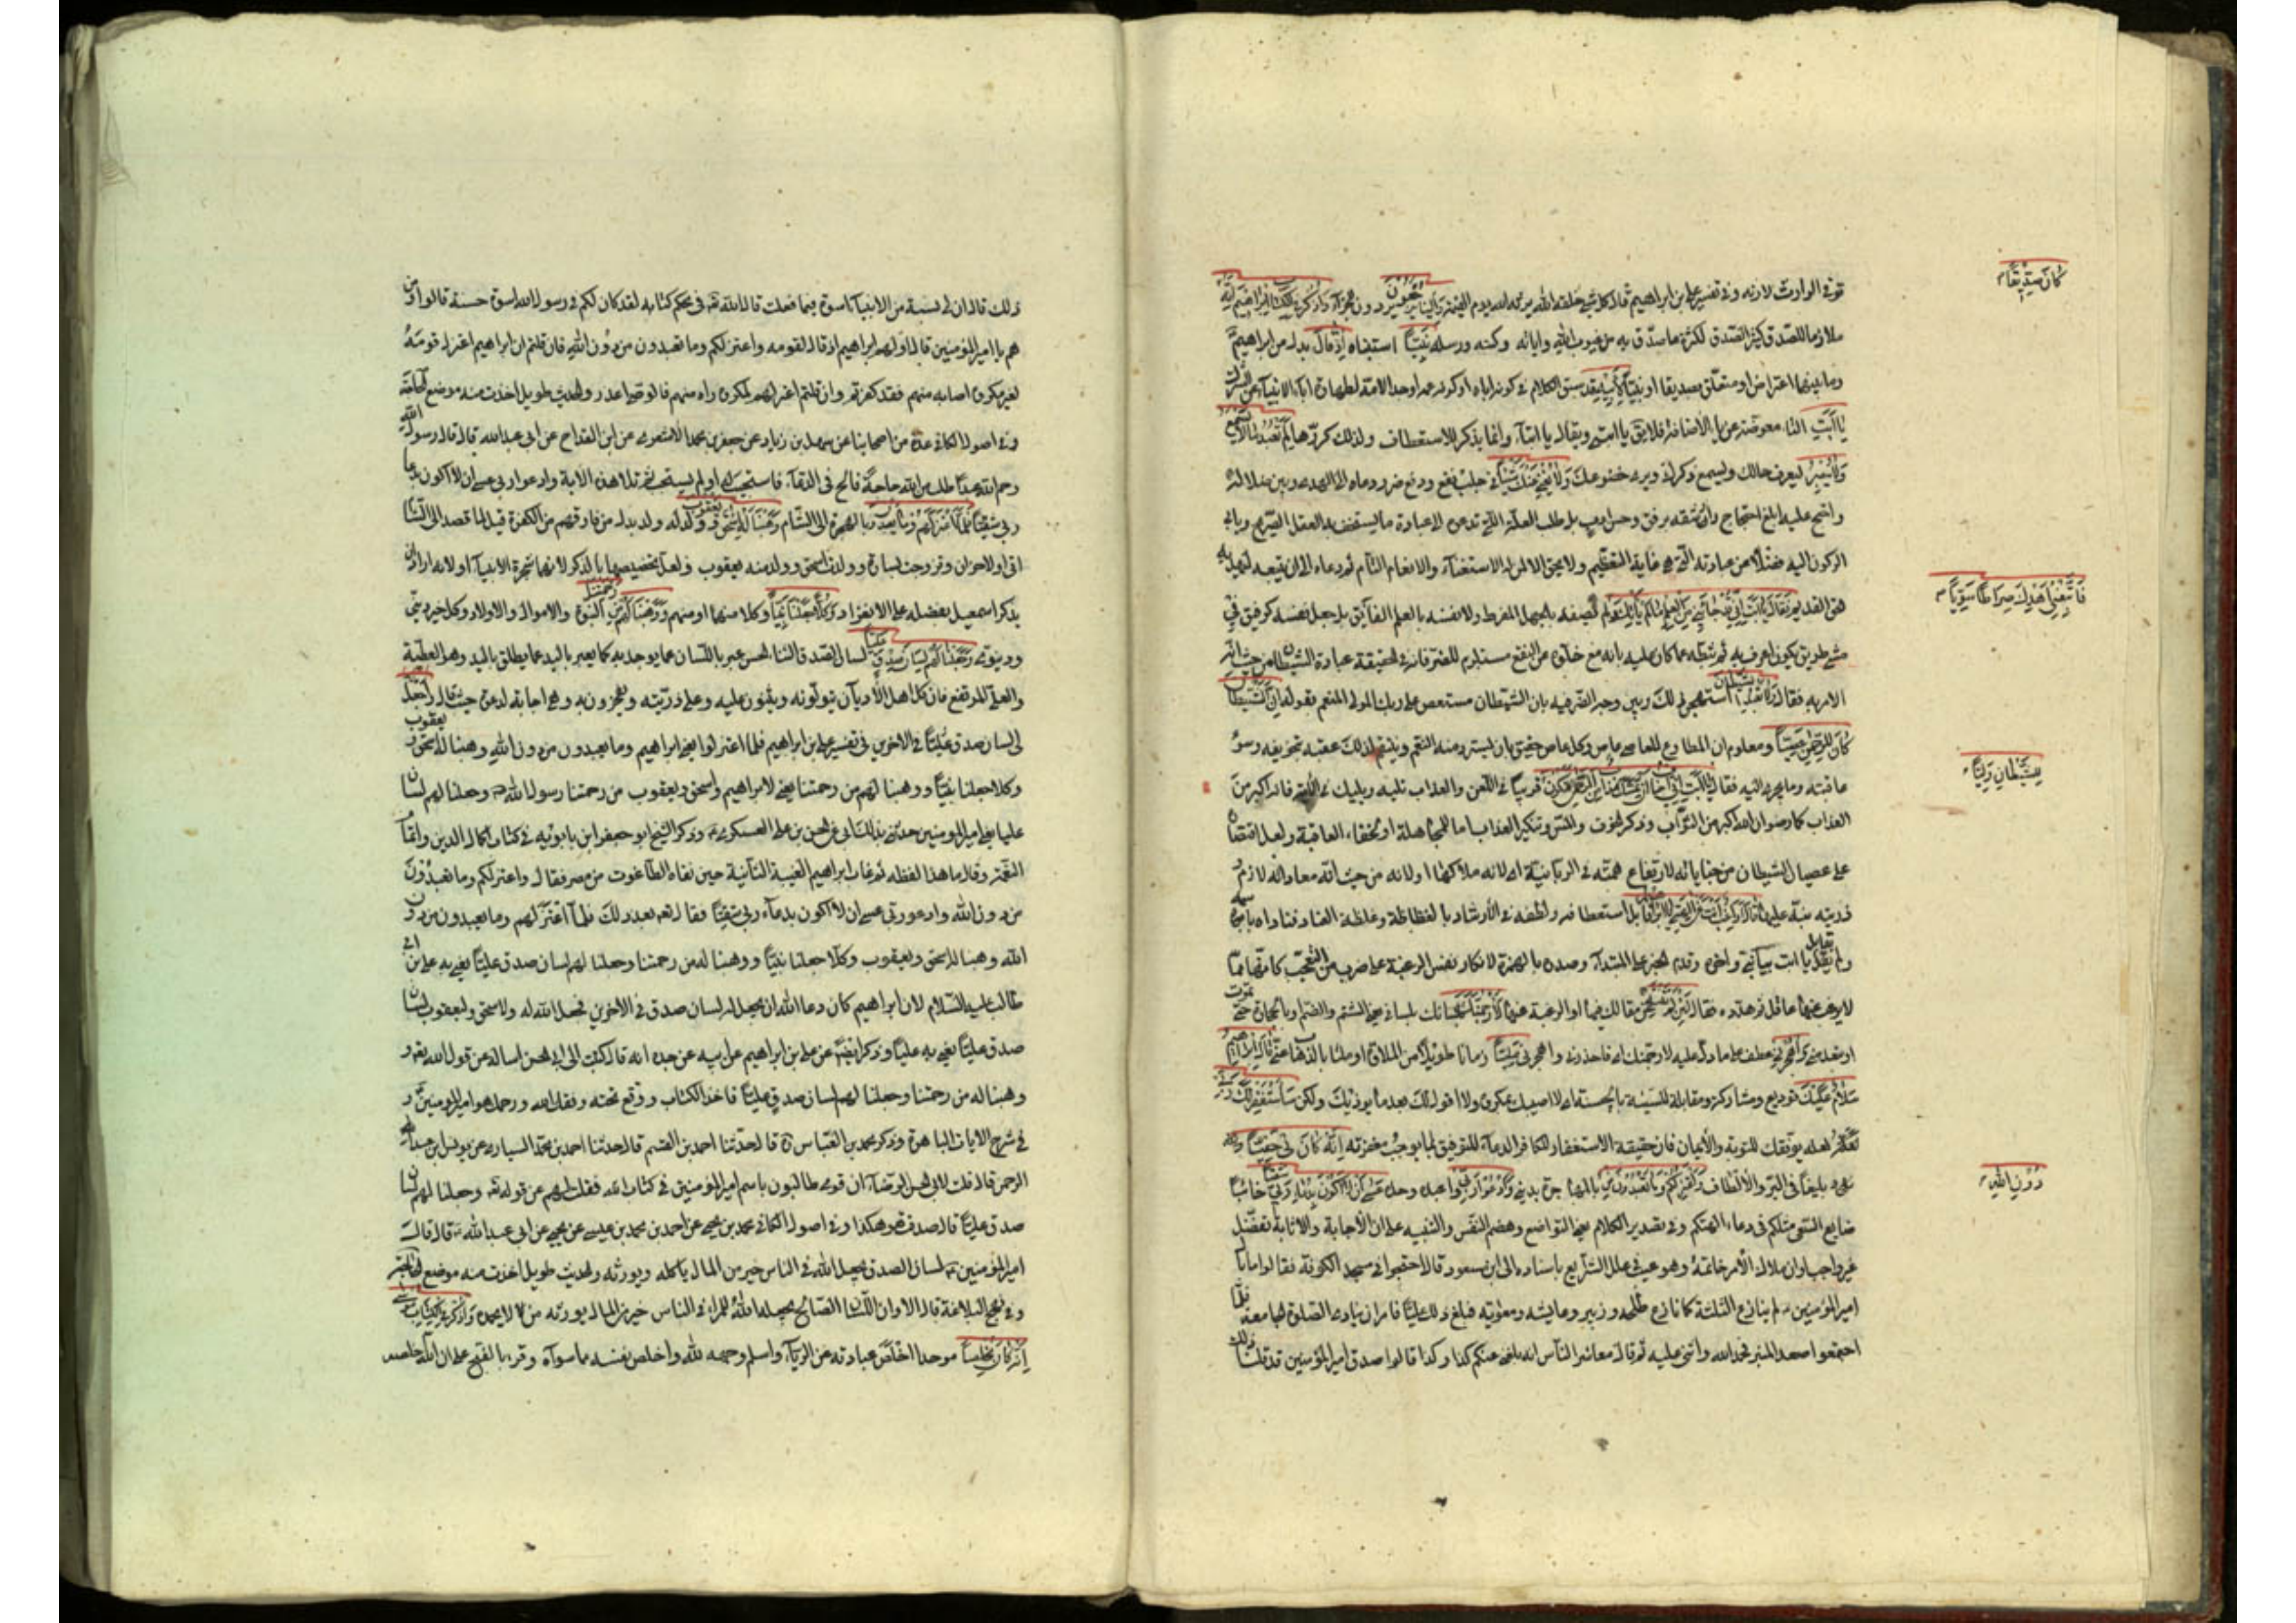 توفي الوارث لارثه وفي تفسير علي بن ابراهيم قال كل شيء خلقه الله يرثه الله يوم القيمة وَاِلَيْنَا يُرْجَعُونَ يردون للجزاء وَاذْكُرْ فِي الْكِتَابِ اِبْرَاهِيمَ اِنَّهُ
كَانَ صِدِّيقًا
ملازما للصدق كثير التصدق لكثرة ما صدق به من غيوب الله واياته وكتبه ورسله نَبِيًّا استنباه اِذْ قَالَ بدل من ابراهيم
وما بينهما اعتراض او متعلق بصديقا او نبيا لِاَبِيهِ قد سبق الكلام في كونه اباه او كونه عمه او جد الامه لطهارة اباء الانبياء عن الشرك
يَا اَبَتِ التاء معوضة عن ياء الاضافة فلا يق يا ابتي ويقال يا ابتا وانما يذكر للاستعطاف ولذلك كررها لِمَ تَعْبُدُ مَا لَا يَسْمَعُ
وَلَا يُبْصِرُ ليعرف حالك ويسمع ذكرك ويرى خضوعك وَلَا يُغْنِي عَنْكَ شَيْئًا في جلب نفع ودفع ضر ودعاه الى الهدى وبين ضلاله
واحتج عليه ابلغ احتجاج وارشقه برفق وحسن ادب بل طلب العلة التي تدعو الى عبادة ما يستخف به العقل الصريح ويابى
الركون اليه فضلا عن عبادته التي هي غاية التعظيم ولا يحق الا لمن له الاستغناء والانعام التام ثم دعاه الى ان يتبعه ليهديه
الحق القديم فقال يَا اَبَتِ اِنِّي قَدْ جَاءَنِي مِنَ الْعِلْمِ مَا لَمْ يَأْتِكَ ولم يصفه بالجهل المفرط ولا نفسه بالعلم الفائق بل جعل نفسه كرفيق في
فَاتَّبِعْنِي اَهْدِكَ صِرَاطًا سَوِيًّا
مسير طويل يكون اعرف به ثم ثبطه عما كان عليه بانه مع خلوه عن النفع مستلزم للضر فانه في الحقيقة عبادة الشيطان من حيث انه
الامر به فقال يَا اَبَتِ لَا تَعْبُدِ الشَّيْطَانَ استهجن ذلك وبين وجه الضر فيه بان الشيطان مستعص على ربك المولى المنعم بقوله اِنَّ الشَّيْطَانَ
كَانَ لِلرَّحْمٰنِ عَصِيًّا ومعلوم ان المطاوع للعاصي عاص وكل عاص حقيق بان يسترد منه النعم وينتقم لذلك عقبه بتخويفه وسوء
عاقبته وما يجر به اليه فقال يَا اَبَتِ اِنِّي اَخَافُ اَنْ يَمَسَّكَ عَذَابٌ مِنَ الرَّحْمٰنِ فَتَكُونَ قرينا في اللعن والعذاب تليه ويليك فانه اكبر من
لِلشَّيْطَانِ وَلِيًّا
العذاب كما رضوان الله اكبر من الثواب وذكر الخوف والمس وتنكير العذاب اما للمجاملة او لخفاء العاقبة ولعل اقتصاره
على عصيان الشيطان من جناياته لارتفاع همته في الربانية او لانه ملاكها او لانه من حيث انه معاداته لادم
وذريته منبه عليها قَالَ اَرَاغِبٌ اَنْتَ عَنْ اٰلِهَتِي يَا اِبْرَاهِيمُ قابل استعطافه ولطفه في الارشاد بالفظاظة وغلظة العناد فناداه باسمه
ولم يقابل يا ابت بيا بني واخره وقدم الخبر على المبتدا وصدره بالهمزة لانكار نفس الرغبة على ضرب من التعجب كانها مما
لا يرغب عنها عاقل ثم هدده فقال لَئِنْ لَمْ تَنْتَهِ عن مقالك فيها او الرغبة عنها لَاَرْجُمَنَّكَ بلساني يعني الشتم والذم او بالحجارة حتى تموت
او تبعد مني وَاهْجُرْنِي عطف على ما دل عليه لارجمنك اي فاحذرني واهجرني مَلِيًّا زمانا طويلا من الملاوة او مليا بالذهاب عني قَالَ اِبْرَاهِيمُ
سَلَامٌ عَلَيْكَ توديع ومتاركة ومقابلة للسيئة بالحسنة اي لا اصيبك بمكروه ولا اقول لك بعد ما يوذيك ولكن سَاَسْتَغْفِرُ لَكَ رَبِّي
لعله يوفقك للتوبة والايمان فان حقيقة الاستغفار للكافر الدعاء للتوفيق لما يوجب مغفرته اِنَّهُ كَانَ بِي حَفِيًّا
بليغا في البر والالطاف وَاَعْتَزِلُكُمْ وَمَا تَدْعُونَ مِنْ بالمهاجرة بديني وَاَدْعُو رَبِّي واعبده وحده عَسَى اَلَّا اَكُونَ بِدُعَاءِ رَبِّي شَقِيًّا خائبا
دُونِ اللهِ
ضايع السعي مثلكم في دعاء الهتكم وفي تصدير الكلام بعسى التواضع وهضم النفس والتنبيه على ان الاجابة والاثابة تفضل
غير واجب وان ملاك الامر خاتمته وهو غيب في علل الشرايع باسناده الى ابن مسعود قال احتجوا في مسجد الكوفة فقالوا ما بال
امير المؤمنين لم ينازع الثلثة كما نازع طلحه وزبير وعايشه ومعويه فبلغ ذلك عليا فامر ان ينادى الصلوة جامعة فلما
اجتمعوا صعد المنبر فحمد الله واثنى عليه ثم قال معاشر الناس انه بلغني عنكم كذا وكذا قالوا صدق امير المؤمنين قد قلنا ذلك
ذلك قال ان لي بسنة من الانبياء اسوة فيما فعلت قال الله في محكم كتابه لقد كان لكم في رسول الله اسوة حسنة قالوا ومن
هم يا امير المؤمنين قال اولهم ابراهيم اذ قال لقومه واعتزلكم وما تدعون من دون الله فان قلتم ان ابراهيم اعتزل قومه
لغير مكروه اصابه منهم فقد كفرتم وان قلتم اعتزلهم لمكروه راه منهم فالوصي اعذر والحديث طويل اخذت منه موضع الحاجة
وفي اصول الكافي عدة من اصحابنا عن سهل بن زياد عن جعفر بن محمد الاشعري عن ابن القداح عن ابي عبدالله قال قال رسول الله
رحم الله عبدا طلب من الله حاجة فالح في الدعاء استجيب له او لم يستجب له ثم تلا هذه الاية وادعو ربي عسى ان لا اكون بدعاء
ربي شقيا فَلَمَّا اعْتَزَلَهُمْ وَمَا يَعْبُدُونَ بالهجرة الى الشام وَهَبْنَا لَهُ اِسْحٰقَ وَيَعْقُوبَ ولد له ولد بدل من فارقهم من الكفرة قيل لما قصد الى الشام
اتى اولا حران وتزوج بسارة وولدت اسحق وولد منه يعقوب ولعل تخصيصهما بالذكر لانهما شجرة الانبياء او لانه اراد ان
يذكر اسمعيل بفضله على الانفراد وَكُلًّا جَعَلْنَا نَبِيًّا وكلا منهما او منهم وَوَهَبْنَا لَهُمْ مِنْ رَحْمَتِنَا النبوة والاموال والاولاد وكل خير ديني
ودنيوي وَجَعَلْنَا لَهُمْ لِسَانَ صِدْقٍ عَلِيًّا لسان الصدق الثناء الحسن عبر باللسان عما يوجد به كما يعبر باليد عما يطلق باليد وهو العطية
والعلي المرتفع فان كل اهل الاديان يتولونه ويثنون عليه وعلى ذريته ويفخرون به وهي اجابة لدعوته حيث قال وَاجْعَلْ
لي لسان صدق عليا في الاخرين في تفسير علي بن ابراهيم فلما اعتزلوا يعني ابراهيم وما يعبدون من دون الله وهبنا له اسحق ويعقوب
وكلا جعلنا نبيا ووهبنا لهم من رحمتنا يعني لابراهيم واسحق ويعقوب من رحمتنا رسول الله وجعلنا لهم لسان
عليا يعني امير المؤمنين حدثني بذلك ابي عن الحسن بن علي العسكري وذكر الشيخ ابو جعفر ابن بابويه في كتاب اكمال الدين واتمام
النعمة وقال ما هذا لفظه ثم غاب ابراهيم الغيبة الثانية حين نفاه الطاغوت من مصر فقال واعتزلكم وما تدعون
من دون الله وادعو ربي عسى ان لا اكون بدعاء ربي شقيا فقال بعد ذلك فلما اعتزلهم وما يعبدون من دون
الله وهبنا له اسحق ويعقوب وكلا جعلنا نبيا ووهبنا لهم من رحمتنا وجعلنا لهم لسان صدق عليا يعني به علي بن ابي
طالب عليه السلام لان ابراهيم كان دعا الله ان يجعل له لسان صدق في الاخرين فجعل الله له ولاسحق ويعقوب لسان
صدق عليا يعني به عليا وذكر ايضا عن علي بن ابراهيم عن ابيه عن جده انه قال كتبت الى ابي الحسن اساله عن قول الله
وهبنا له من رحمتنا وجعلنا لهم لسان صدق عليا فاخذ الكتاب ووقع تحته وفقك الله ورحمك هو امير المؤمنين
في شرح الايات الباهرة وذكر محمد بن العباس قال حدثنا احمد بن القسم قال حدثنا احمد بن محمد السياري عن يونس بن عبد
الرحمن قال قلت لابي الحسن الرضا ان قوما طالبون باسم امير المؤمنين في كتاب الله فقلت لهم من قوله وجعلنا لهم لسان
صدق عليا قال صدقت هو هكذا وفي اصول الكافي محمد بن يحيى عن احمد بن محمد بن عيسى عن يحيى عن ابي عبد الله قال قال
امير المؤمنين لسان الصدق يجعل الله في الناس خير من المال ياكله ويورثه والحديث طويل اخذت منه موضع الحاجة
وفي نهج البلاغة قال الا وان اللسان الصالح يجعله الله للمرء في الناس خير من المال يورثه من لا يحمده وَاذْكُرْ فِي الْكِتَابِ مُوسٰى
اِنَّهُ كَانَ مُخْلَصًا موحدا اخلص عبادته عن الرياء واسلم وجهه لله واخلص نفسه عما سواه وقرء بالفتح على ان الله اخلصه